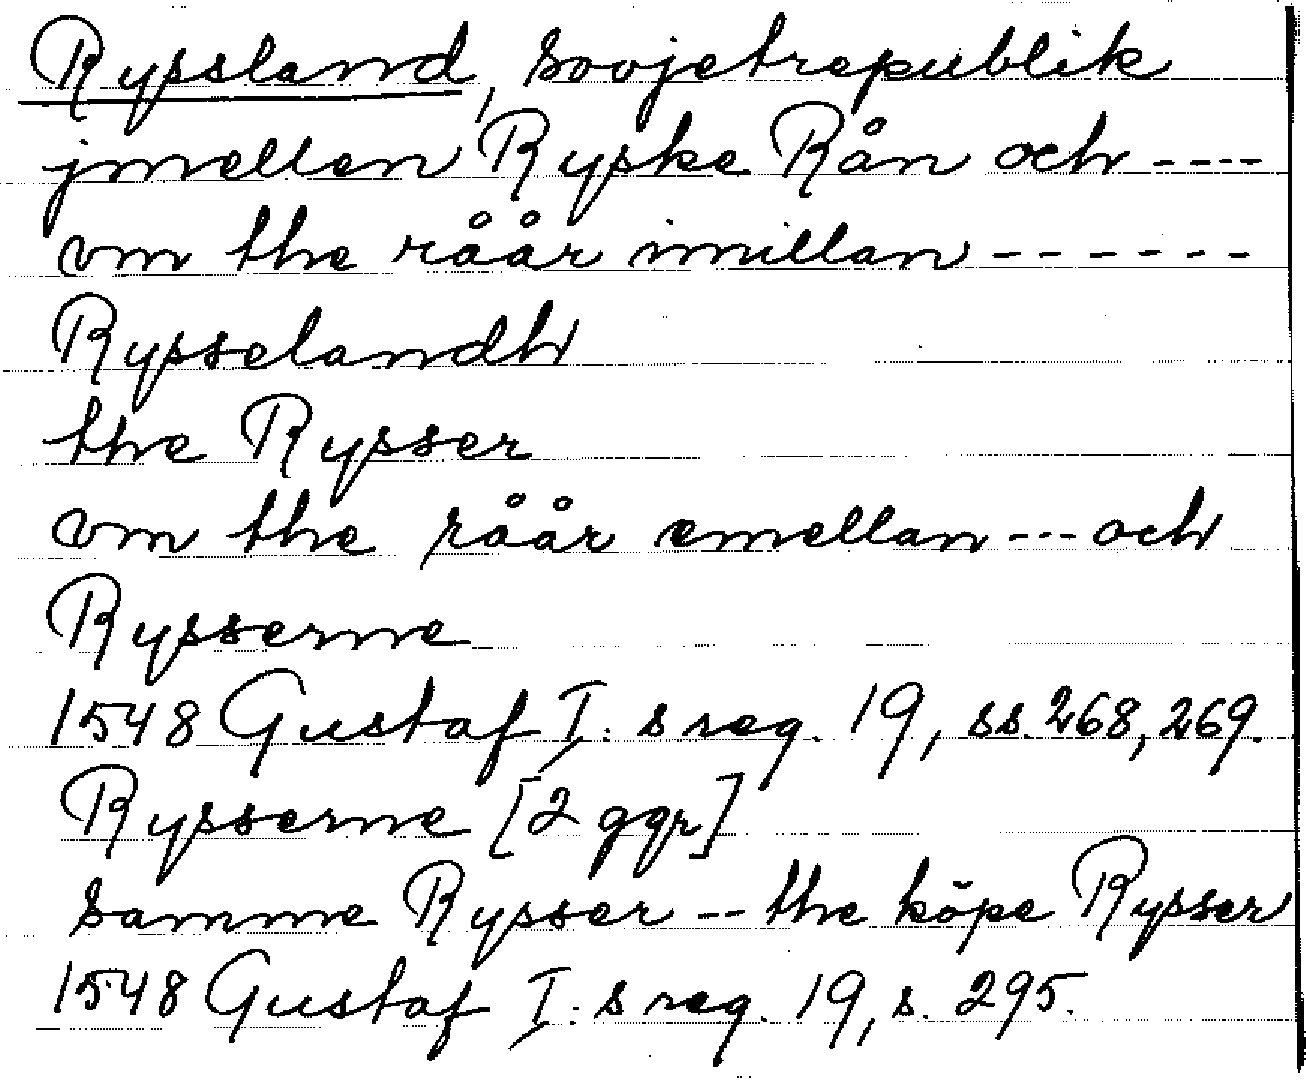 Ryssland, Sovjetrepublik
jmellen Ryske Rån och ----
vm the råår imillan ------
Rysselandh
the Rysser
vm the råår emellan --- och
Rysserne
1548 Gustaf I:s reg. 19, ss. 268, 269.
Rysserne [2 ggr]
samme Rysser -- the köpe Rysser
1548 Gustaf I:s reg. 19, s. 295.